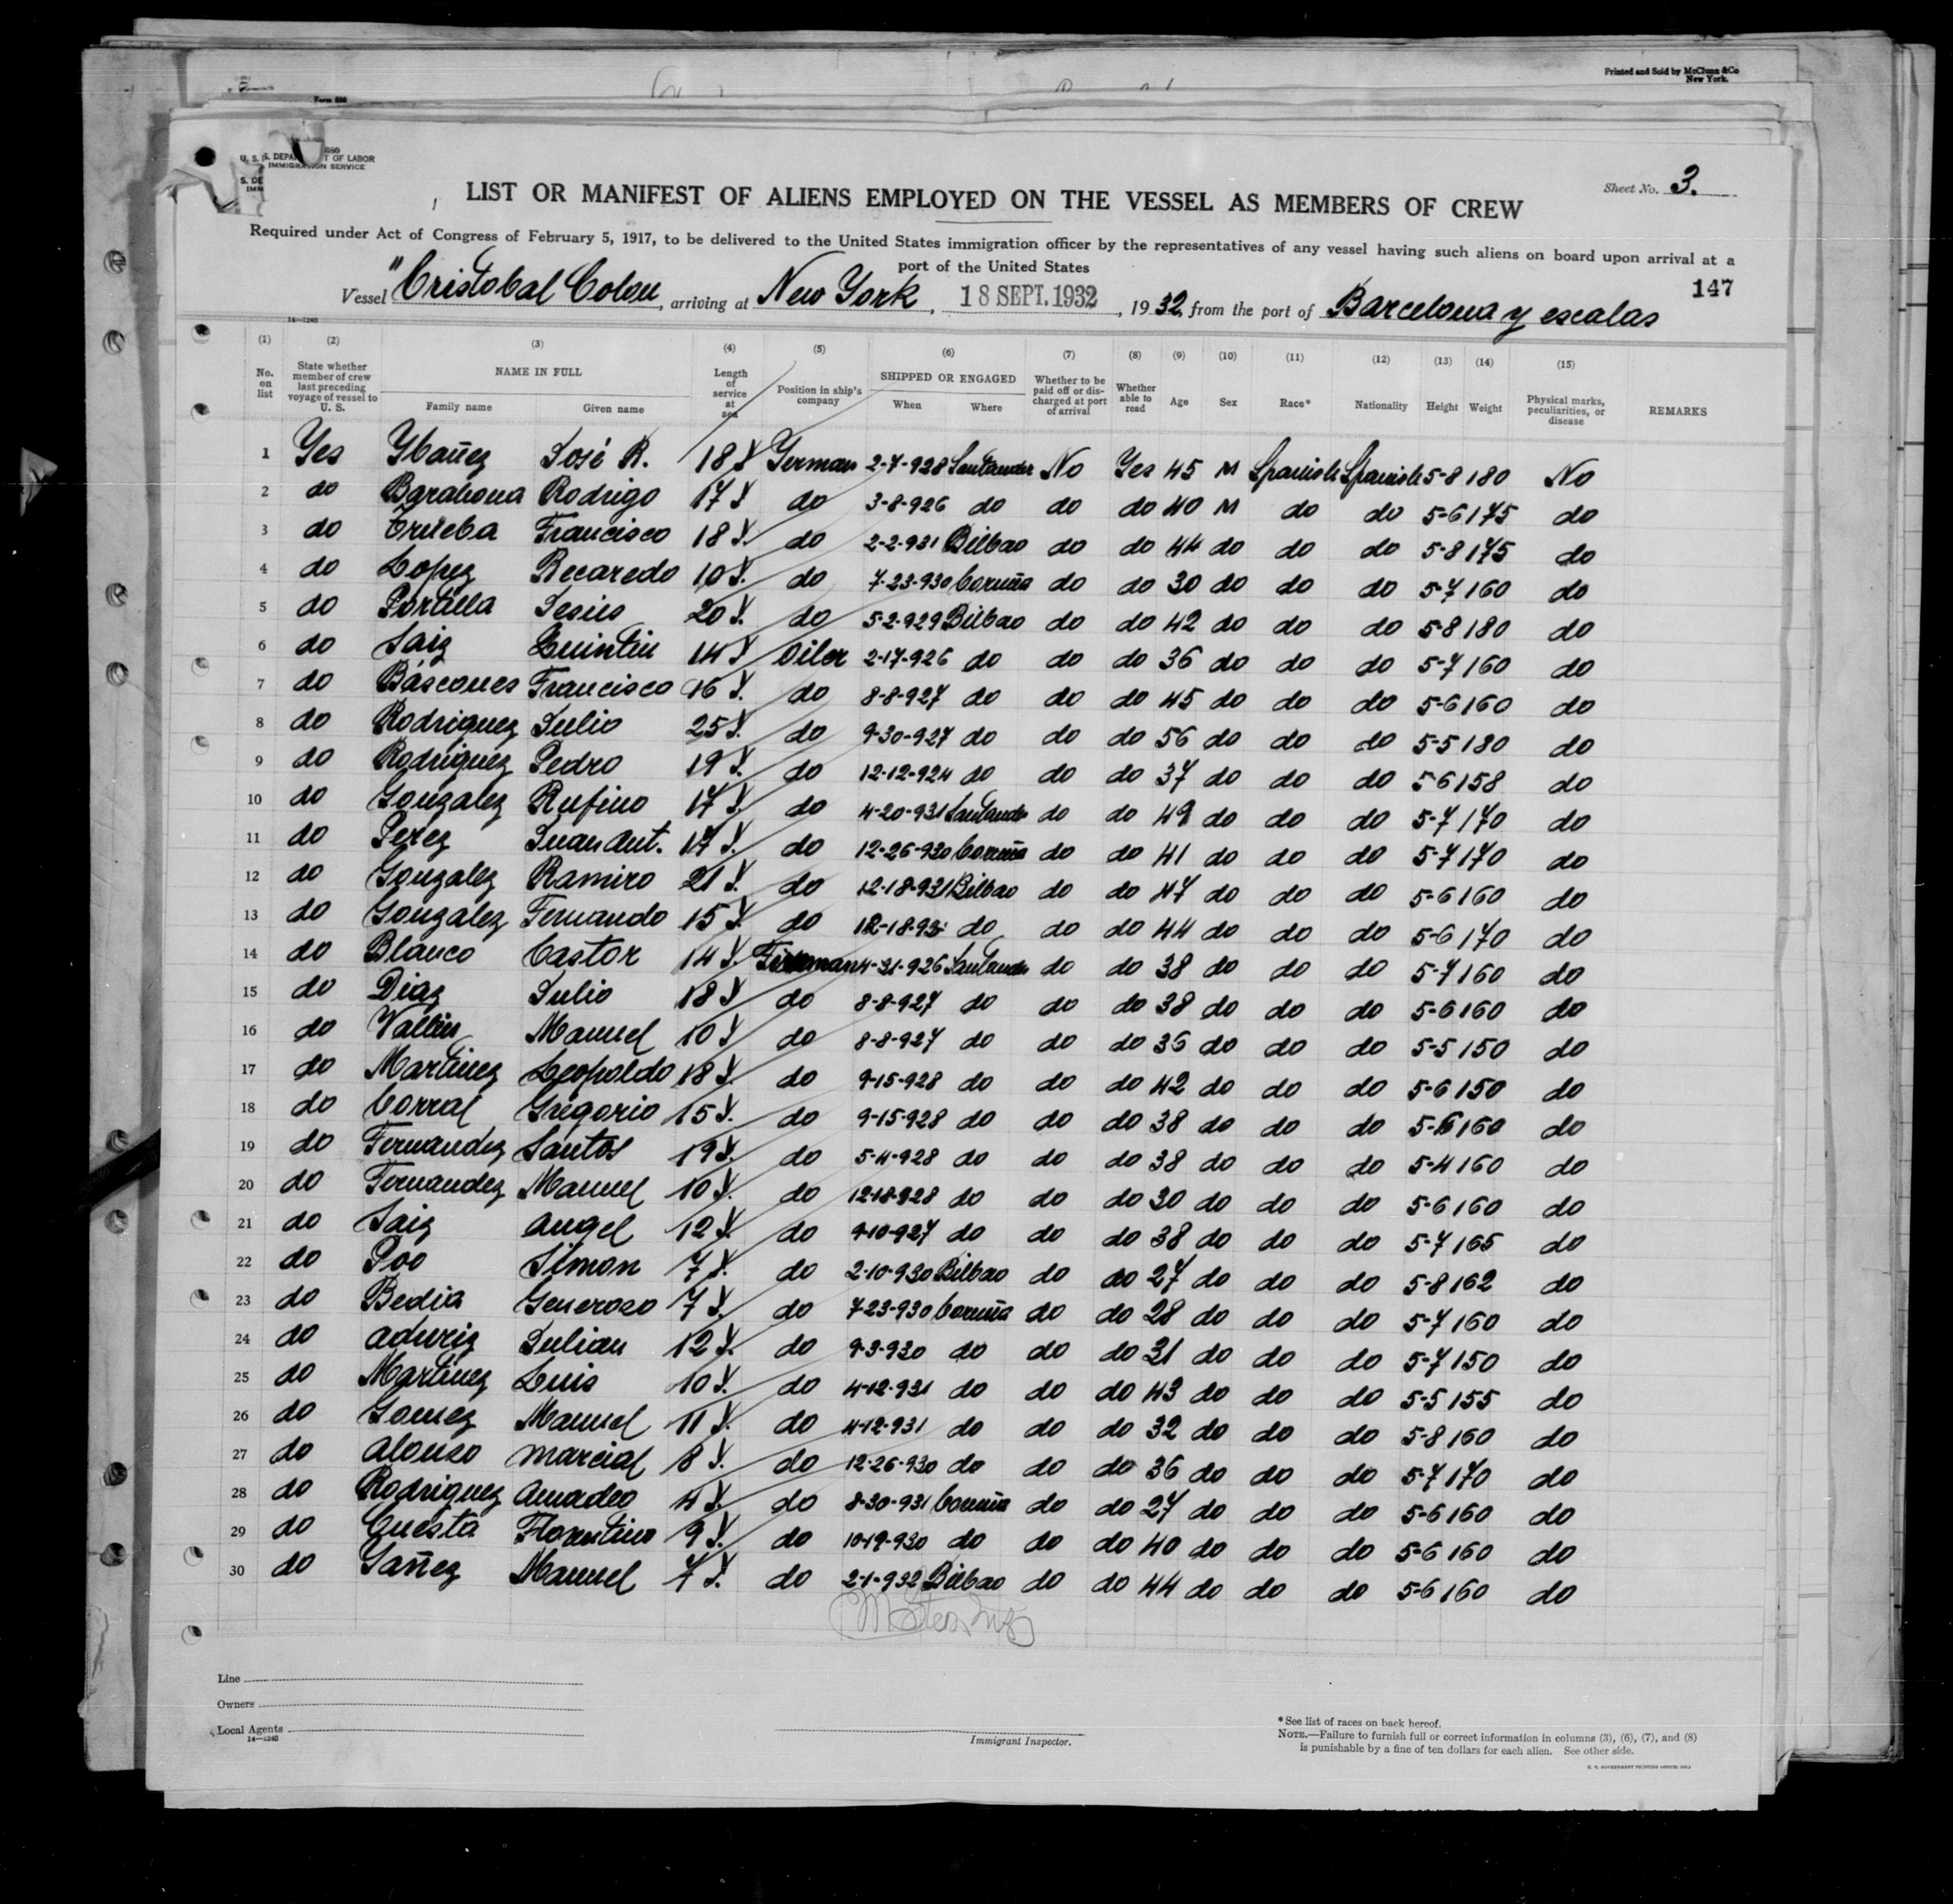 Printed and Sold by McClunn &Co
New York.
Form 680
680
U. S. DEPARTMENT OF LABOR
IMMIGRATION SERVICE
Sheet No. 3.
LIST OR MANIFEST OF ALIENS EMPLOYED ON THE VESSEL AS MEMBERS OF CREW
Required under Act of Congress of February 5, 1917, to be delivered to the United States immigration officer by the representatives of any vessel having such aliens on board upon arrival at a
port of the United States
147
Vessel "Cristobal Colon, arriving at New York, 18 SEPT. 1932, 1932, from the port of Barcelona y escalas
14—1240
(1) (2) (3) (4) (5) (6) (7) (8) (9) (10) (11) (12) (13) (14) (15)
No. on list State whether member of crew last preceding voyage of vessel to U. S. NAME IN FULL Family name Given name Length of service at sea Position in ship's company SHIPPED OR ENGAGED When Where Whether to be paid off or discharged at port of arrival Whether able to read Age Sex Race* Nationality Height Weight Physical marks, peculiarities, or disease REMARKS
1 Yes Ybañez José R. 18 Y Yerman 2-7-928 Santander No Yes 45 M Spanish Spanish 5-8 180 No
2 do Barahona Rodrigo 17 Y do 3-8-926 do do do 40 M do do 5-6 175 do
3 do Trueba Francisco 18 Y. do 2-2-931 Bilbao do do 44 do do do 5-8 175 do
4 do Lopez Recaredo 10 Y. do 7-23-930 Coruña do do 30 do do do 5-7 160 do
5 do Portilla Jesús 20 Y. do 5-2-929 Bilbao do do 42 do do do 5-8 180 do
6 do Saiz Quintin 14 Y Oiler 2-17-926 do do do 36 do do do 5-7 160 do
7 do Báscones Francisco 16 Y. do 8-8-927 do do do 45 do do do 5-6 160 do
8 do Rodriguez Julio 25 Y. do 9-30-927 do do do 56 do do do 5-5 180 do
9 do Rodriguez Pedro 19 Y. do 12-12-924 do do do 37 do do do 5-6 158 do
10 do Gonzalez Rufino 17 Y. do 4-20-931 Santander do do 49 do do do 5-7 170 do
11 do Perez Juan Ant. 17 Y. do 12-26-930 Coruña do do 41 do do do 5-7 170 do
12 do Gonzalez Ramiro 21 Y. do 12-18-931 Bilbao do do 47 do do do 5-6 160 do
13 do Gonzalez Fernando 15 Y. do 12-18-93 do do do 44 do do do 5-6 170 do
14 do Blanco Castor 14 Y. Fireman 4-21-926 Santander do do 38 do do do 5-7 160 do
15 do Diaz Julio 18 Y do 8-8-927 do do do 38 do do do 5-6 160 do
16 do Vallin Manuel 10 Y do 8-8-927 do do do 36 do do do 5-5 150 do
17 do Martinez Leopoldo 18 Y. do 9-15-928 do do do 42 do do do 5-6 150 do
18 do Corral Gregorio 15 Y. do 9-15-928 do do do 38 do do do 5-6 160 do
19 do Fernandez Santos 19 Y. do 5-4-928 do do do 38 do do do 5-4 160 do
20 do Fernandez Manuel 10 Y. do 12-18-928 do do do 30 do do do 5-6 160 do
21 do Saiz Angel 12 Y. do 9-10-927 do do do 38 do do do 5-7 165 do
22 do Poo Simon 7 Y. do 2-10-930 Bilbao do do 27 do do do 5-8 162 do
23 do Bedia Generoso 7 Y. do 7-23-930 Coruña do do 28 do do do 5-7 160 do
24 do Aduriz Julian 12 Y. do 9-3-930 do do do 31 do do do 5-7 150 do
25 do Martinez Luis 10 Y. do 4-12-931 do do do 43 do do do 5-5 155 do
26 do Gomez Manuel 11 Y. do 4-12-931 do do do 32 do do do 5-8 160 do
27 do Alonso Marcial 8 Y. do 12-26-930 do do do 36 do do do 5-7 170 do
28 do Rodriguez Amadeo 4 Y. do 8-30-931 Coruña do do 27 do do do 5-6 160 do
29 do Cuesta Florentino 9 Y. do 10-19-930 do do do 40 do do do 5-6 160 do
30 do Yañez Manuel 7 Y. do 2-1-932 Bilbao do do 44 do do do 5-6 160 do
Line
Owners
Local Agents
14—1240
Immigrant Inspector.
*See list of races on back hereof.
NOTE.—Failure to furnish full or correct information in columns (3), (6), (7), and (8)
is punishable by a fine of ten dollars for each alien. See other side.
U. S. GOVERNMENT PRINTING OFFICE: